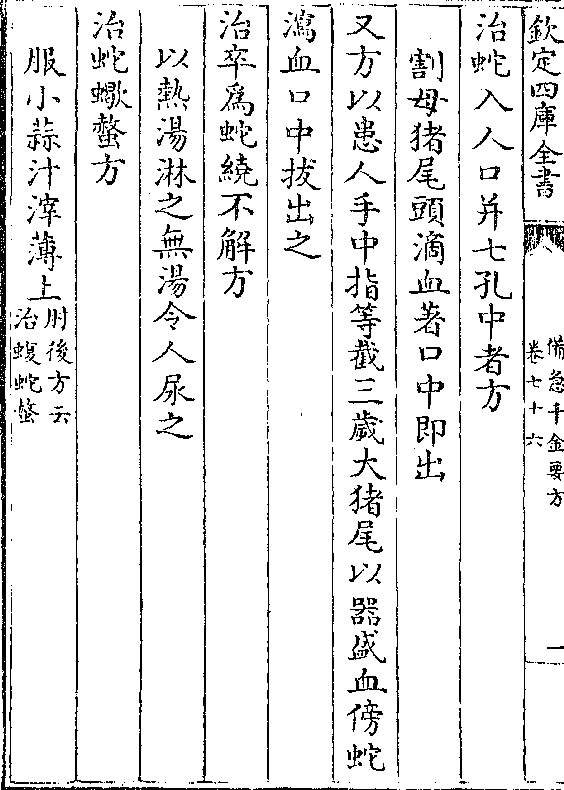 欽定四庫全書
備急千金要方
卷七十六
一
治蛇入人口并七孔中者方
割母猪尾頭滴血著口中即出
又方以患人手中指等截三歲大猪尾以器盛血傍蛇
瀉血口中拔出之
治卒為蛇繞不解方
以熱湯淋之無湯令人尿之
治蛇蠍螫方
服小蒜汁滓薄上
肘後方云
治蝮蛇螫